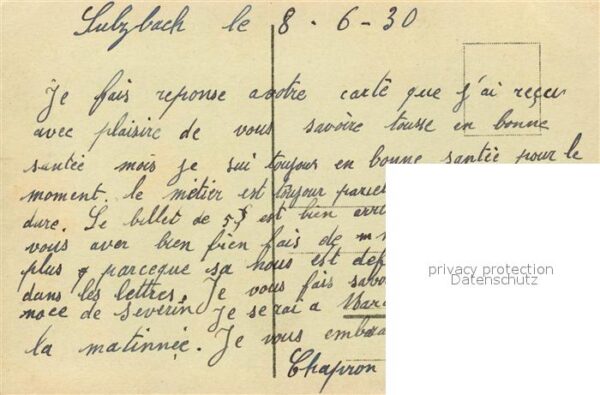 Sulzbach le 8-6-30
Je fais reponse avotre carte que j'ai reçeu
avec plaisire de vous savoire tousse en bonne
santée mois je sui toujour en bonne santée pour le
moment. le métier est toujour
dure. Le billet de 5 est bien
vous aver bien fien fais de
plus parceque sa nous est def
dans les lettres. Je vous fais savo
noce de Severin Je serai a
la matinnée. Je vous embra
Chapron
privacy protection
Datenschutz